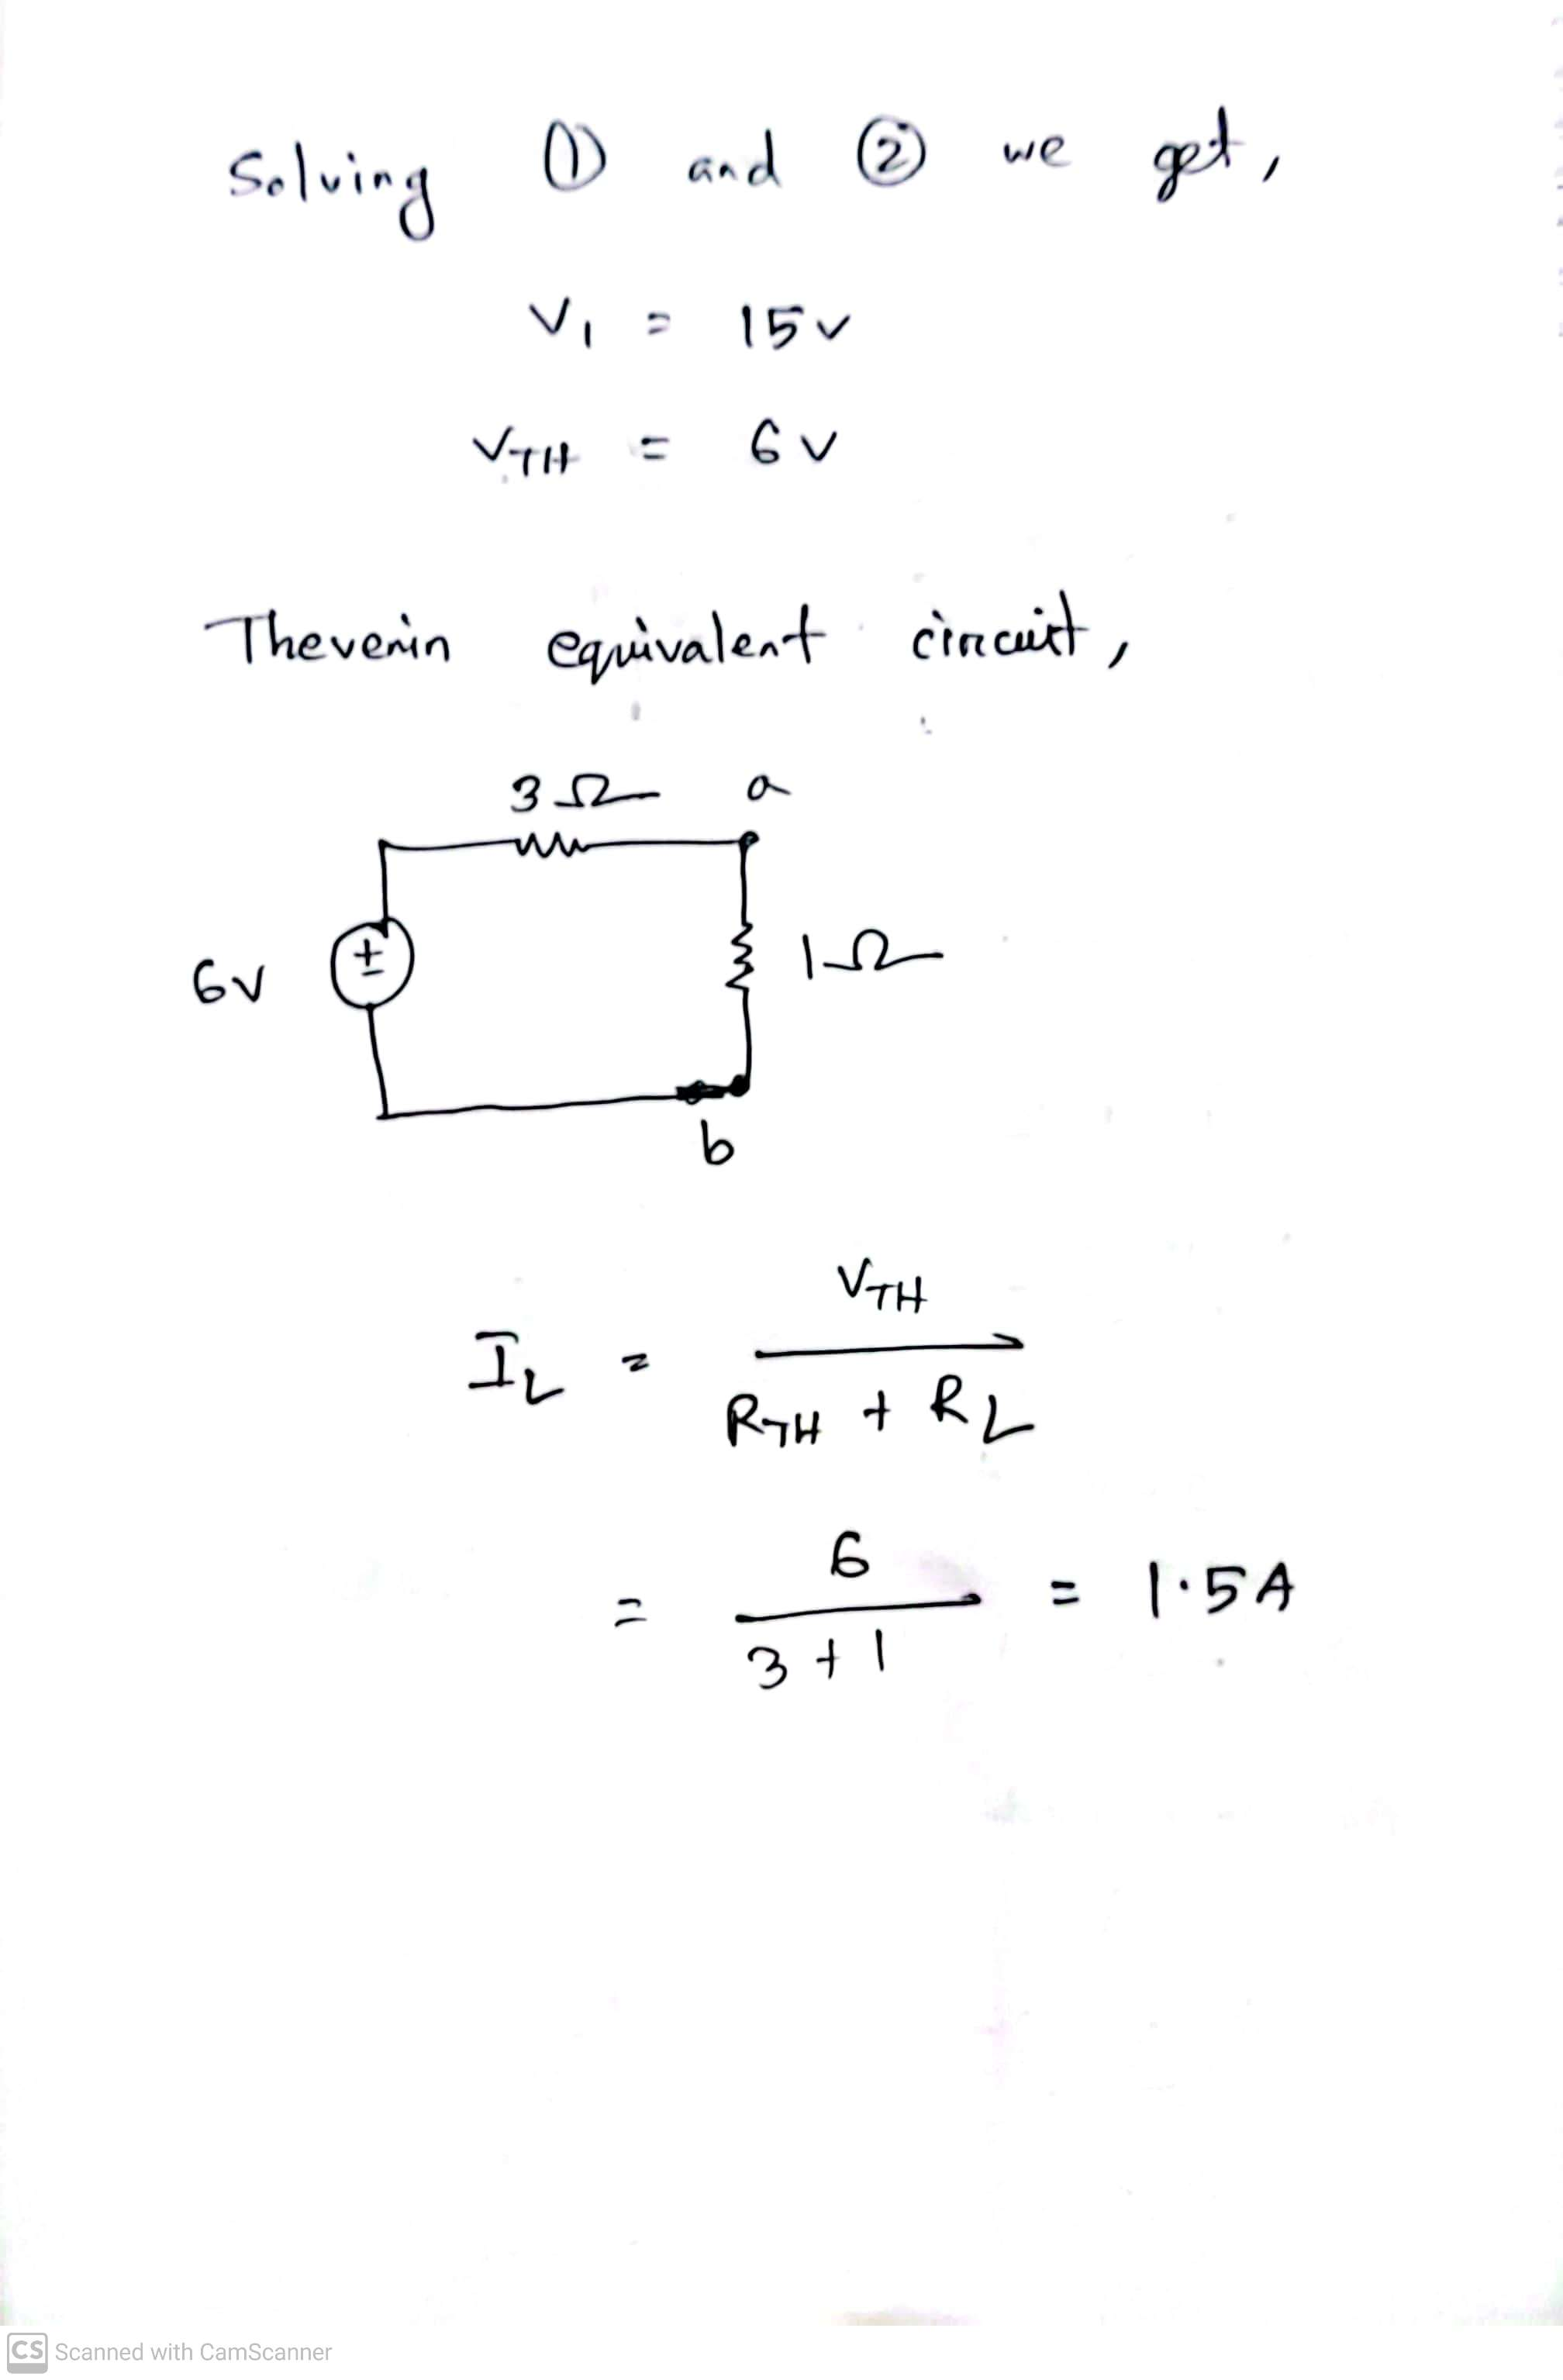 Solving ① and ② we get,
V1 = 15v
VTH = 6v
Thevenin equivalent circuit,
3Ω a
6v + - 1Ω
b
IL = VTH / RTH + RL
= 6 / 3+1 = 1.5A
CS Scanned with CamScanner